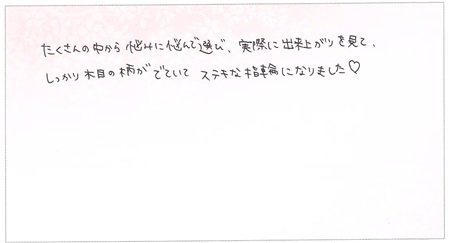 たくさんの中から悩みに悩んで選び、実際に出来上がりを見て、
しっかり木目の柄がでていて ステキな指輪になりました♡